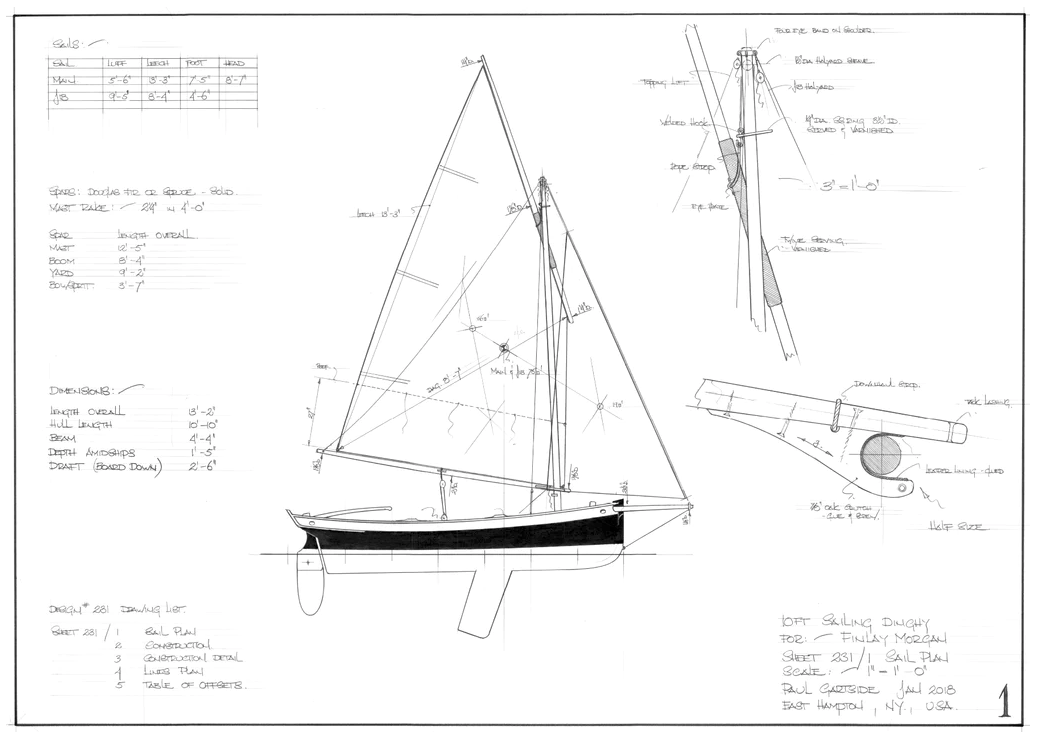 SAILS:
SAIL LUFF LEECH FOOT HEAD
MAIN 5'-6" 13'-3" 7'-5" 8'-7"
JIB 9'-5" 8'-4" 4'-6"
SPARS: DOUGLAS FIR OR SPRUCE - SOLID.
MAST RAKE: 2¼" IN 4'-0"
SPAR LENGTH OVERALL
MAST 12'-5"
BOOM 8'-4"
YARD 9'-2"
BOWSPRIT 3'-7"
DIMENSIONS:
LENGTH OVERALL 13'-2"
HULL LENGTH 10'-10"
BEAM 4'-4"
DEPTH AMIDSHIPS 1'-5"
DRAFT (BOARD DOWN) 2'-6"
DESIGN # 231 DRAWING LIST.
SHEET 231/1 SAIL PLAN
2 CONSTRUCTION
3 CONSTRUCTION DETAIL
4 LINES PLAN
5 TABLE OF OFFSETS.
LEECH 13'-3"
REEF
DIAG. 13'-7"
MAIN & JIB
FOUR EYE BAND ON SHOULDER.
HALYARD SHEAVE
TOPPING LIFT
JIB HALYARD
WELDED HOOK
SERVED & VARNISHED
ROPE STROP
EYE PLATE
3" = 1'-0"
TWINE SERVING
VARNISHED
DOWNHAUL STROP.
TACK LASHING.
LEATHER LINING - GLUED
OAK CLUTCH
- GLUE & SCREW.
HALF SIZE
10FT SAILING DINGHY
FOR: FINLAY MORGAN
SHEET 231/1 SAIL PLAN
SCALE: 1" = 1'-0"
PAUL GARTSIDE JAN 2018
EAST HAMPTON, NY., USA.
1